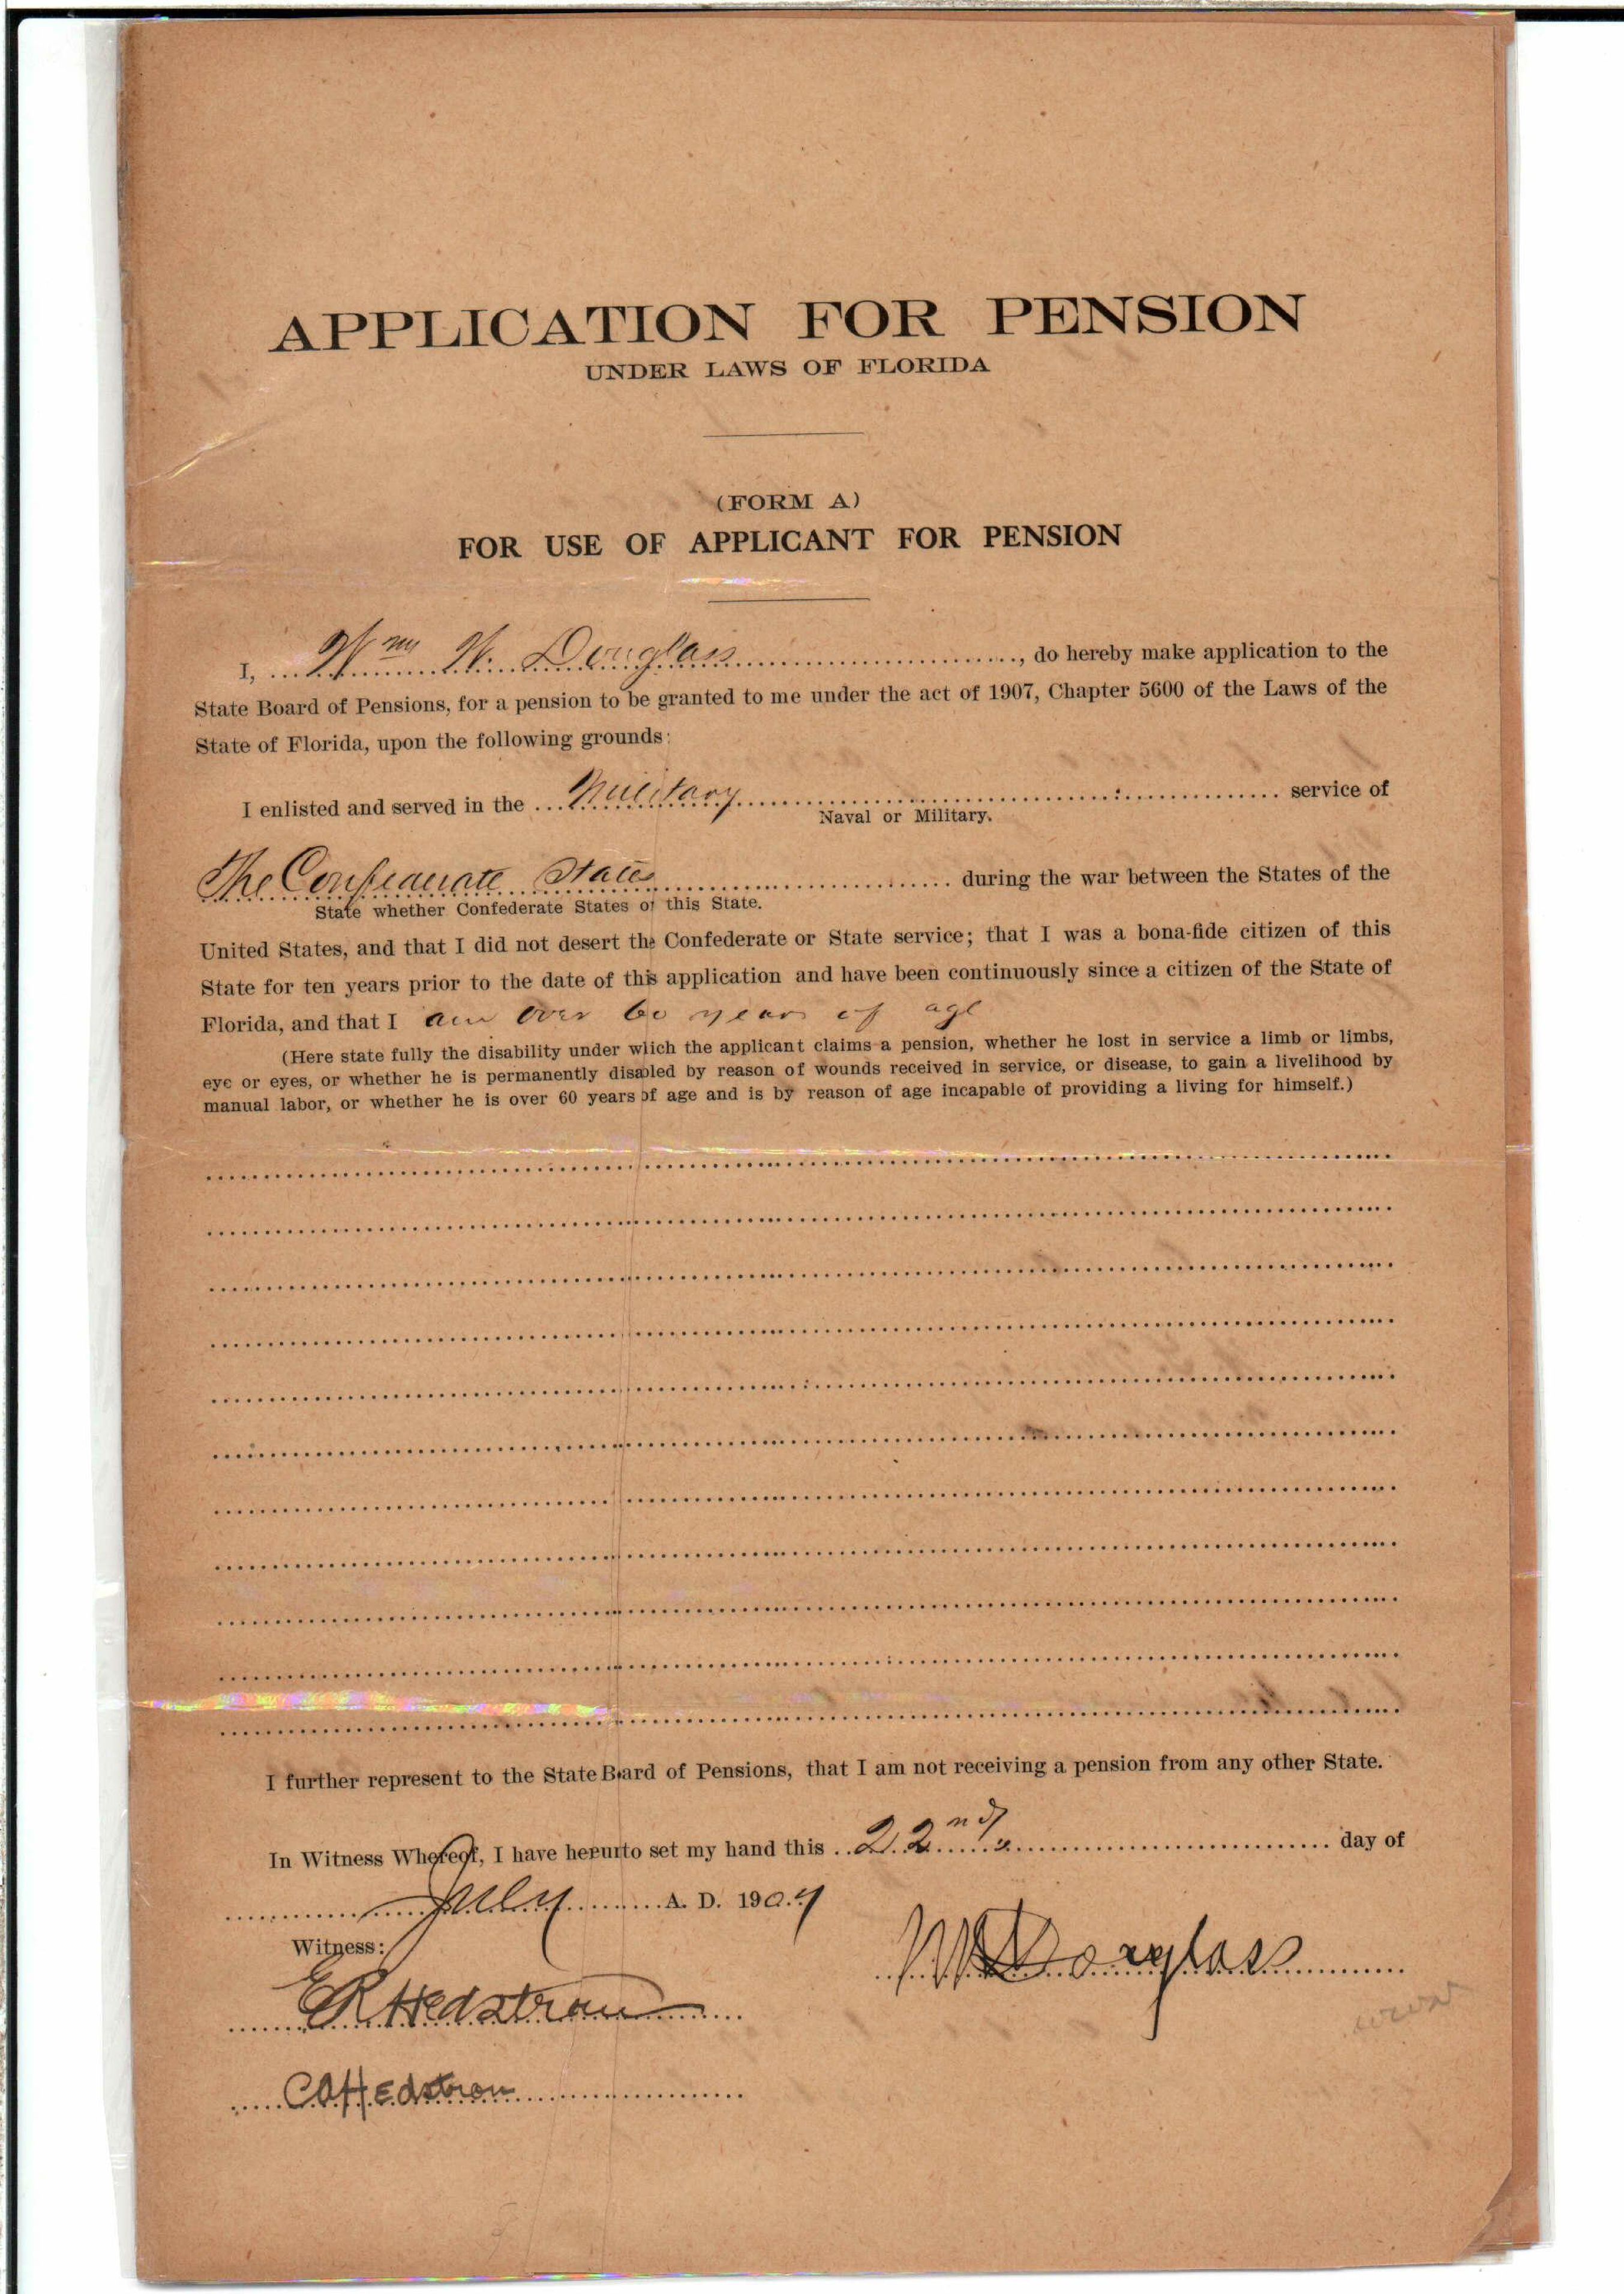 APPLICATION FOR PENSION
UNDER LAWS OF FLORIDA
(FORM A)
FOR USE OF APPLICANT FOR PENSION
I, Wm W. Douglass, do hereby make application to the
State Board of Pensions, for a pension to be granted to me under the act of 1907, Chapter 5600 of the Laws of the
State of Florida, upon the following grounds:
I enlisted and served in the Military service of
Naval or Military.
The Confederate States during the war between the States of the
State whether Confederate States or this State.
United States, and that I did not desert the Confederate or State service; that I was a bona-fide citizen of this
State for ten years prior to the date of this application and have been continuously since a citizen of the State of
Florida, and that I am over 60 years of age
(Here state fully the disability under which the applicant claims a pension, whether he lost in service a limb or limbs,
eye or eyes, or whether he is permanently disabled by reason of wounds received in service, or disease, to gain a livelihood by
manual labor, or whether he is over 60 years of age and is by reason of age incapable of providing a living for himself.)
I further represent to the State Board of Pensions, that I am not receiving a pension from any other State.
In Witness Whereof, I have hereunto set my hand this 22nd day of
July A. D. 190
Witness:
W W Douglass
E R Hedstrom
C A Hedstrom